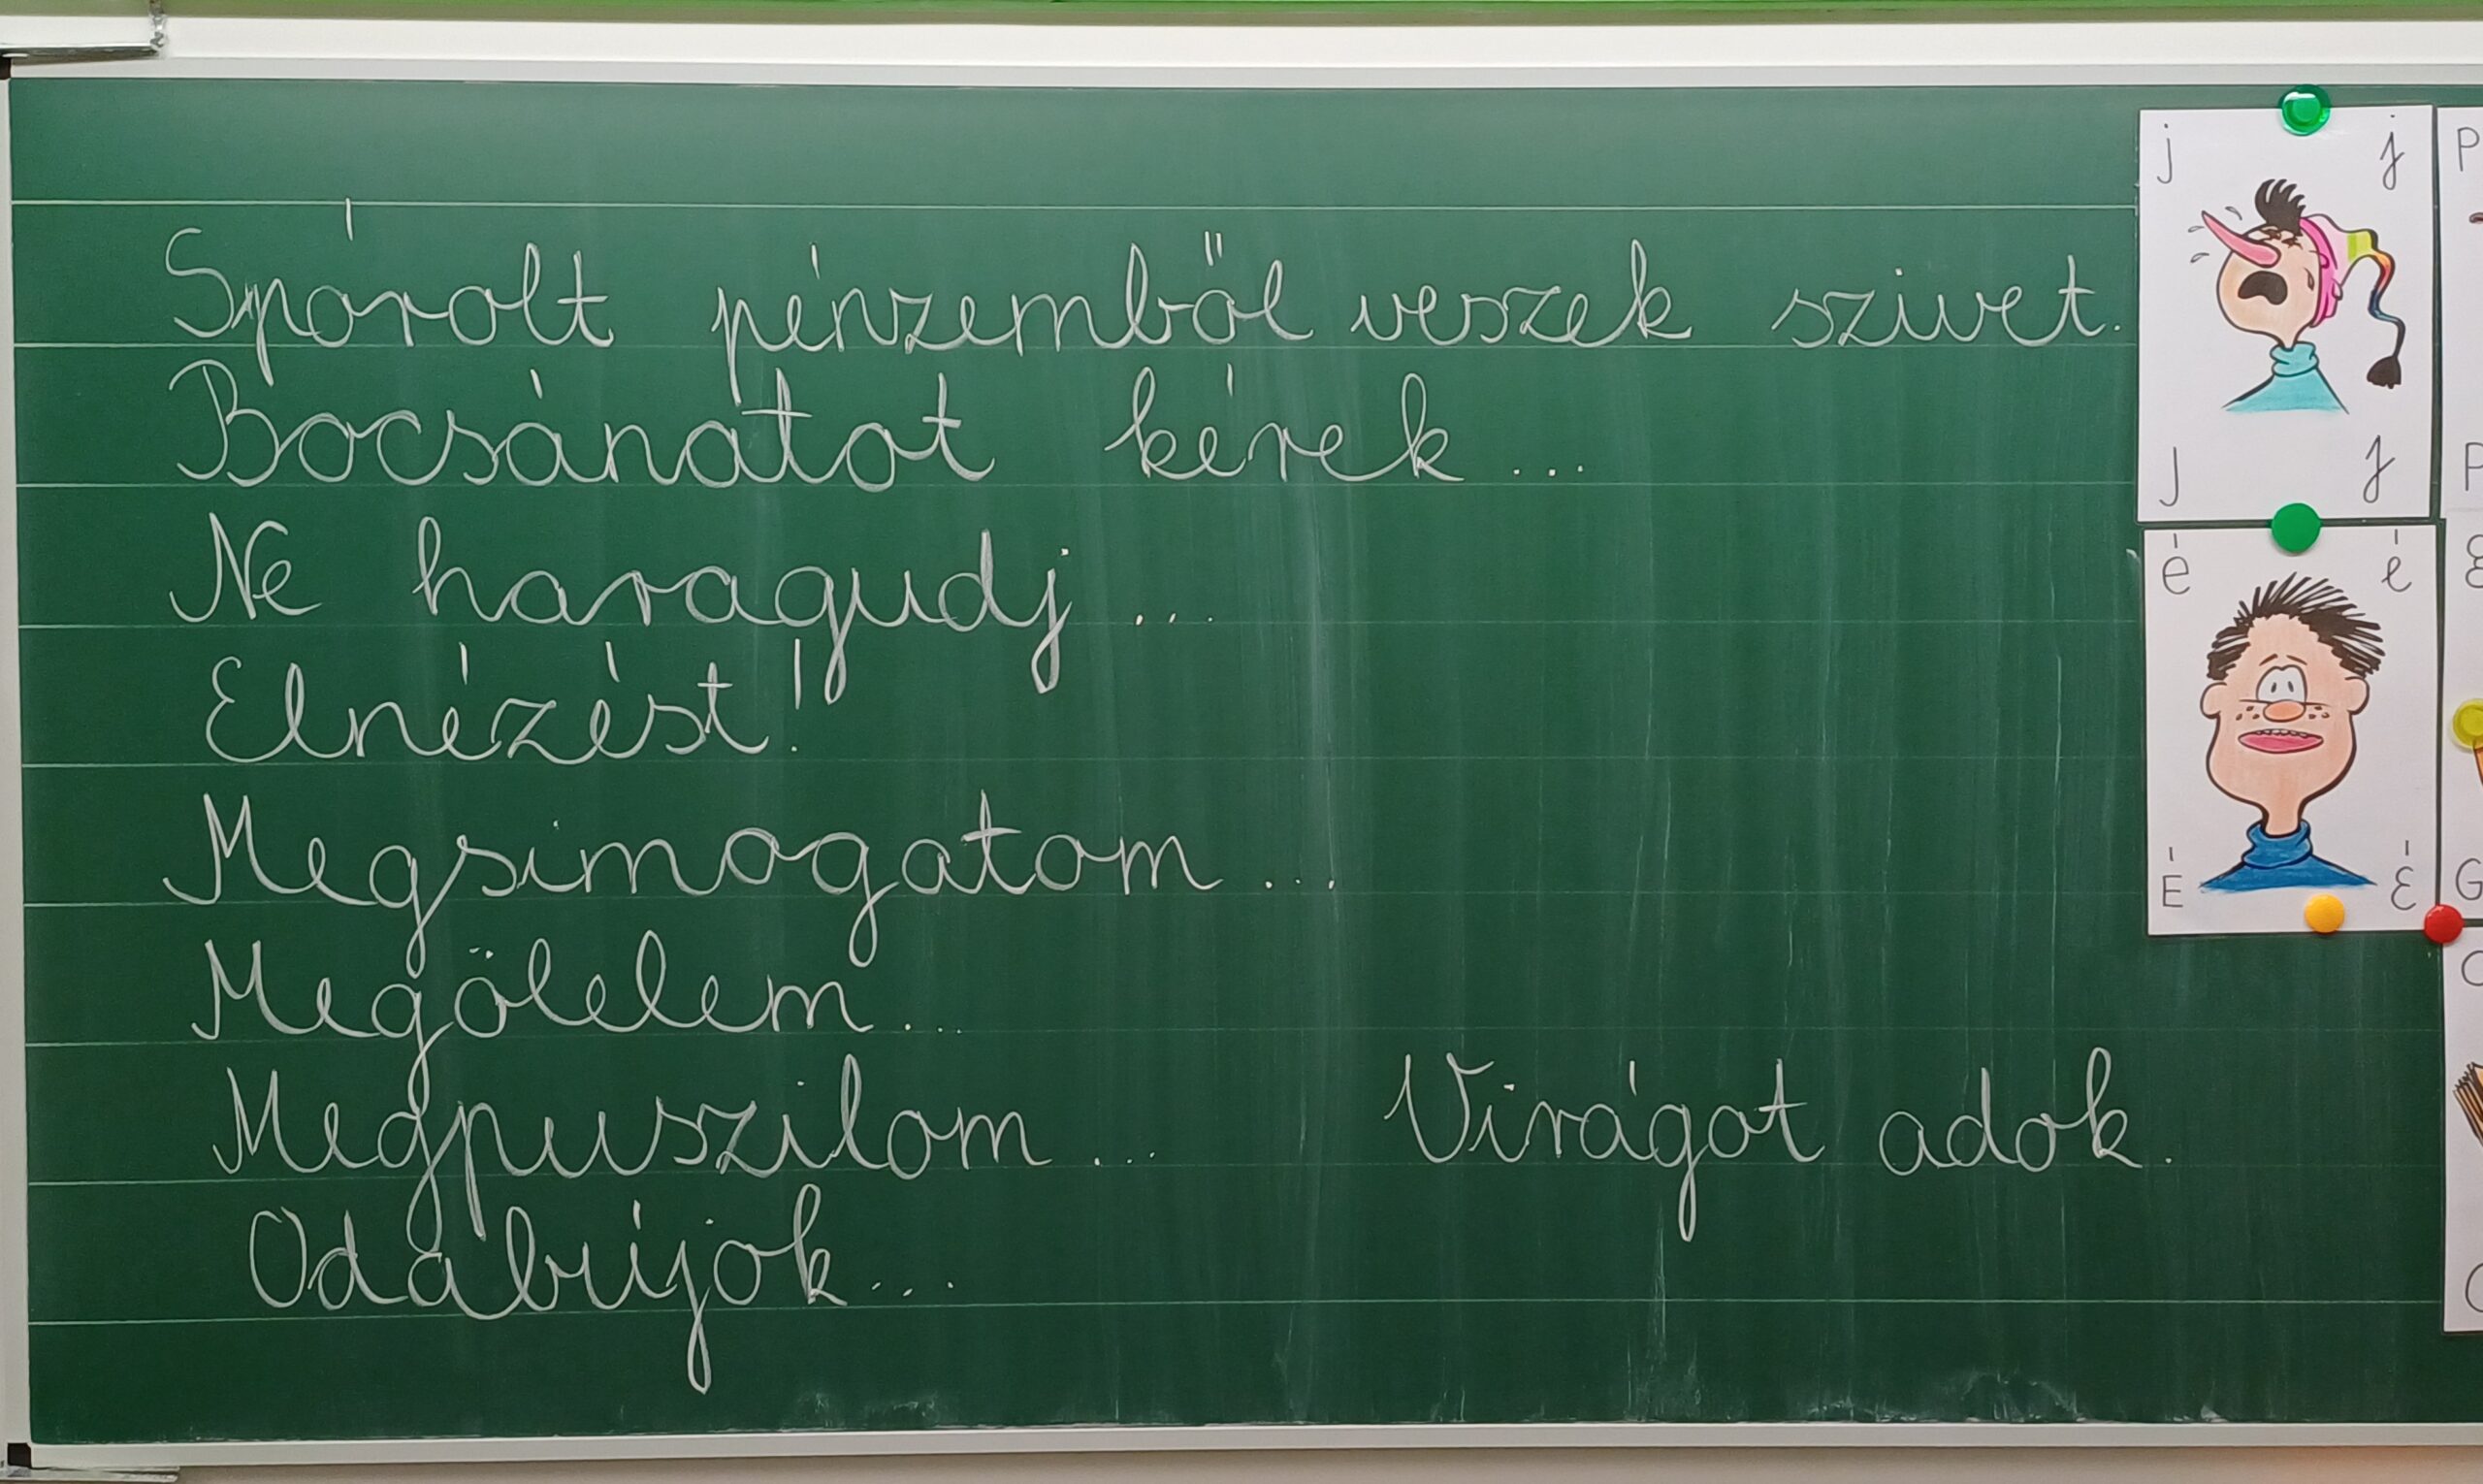 Spórolt pénzemből veszek szivet.
Bocsánatot kérek...
Ne haragudj...
Elnézést!
Megsimogatom...
Megölelem...
Megpuszilom... Virágot adok.
Odabújok...
j j
J J
é é
É É
P
P
G